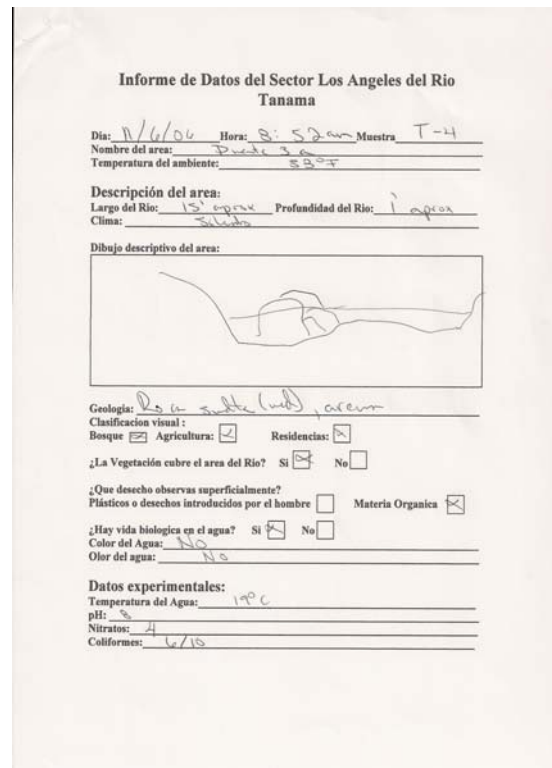 Informe de Datos del Sector Los Angeles del Rio
Tanama
Dia: 11/6/06 Hora: 8:52 am Muestra T-4
Nombre del area: Puente 3
Temperatura del ambiente: 53°F
Descripción del area:
Largo del Rio: 15' aprox Profundidad del Rio: 1' aprox
Clima:
Dibujo descriptivo del area:
Geologia: Roca suelta (med), arena
Clasificacion visual :
Bosque Agricultura: Residencias:
¿La Vegetación cubre el area del Rio? Si No
¿Que desecho observas superficialmente?
Plásticos o desechos introducidos por el hombre Materia Organica
¿Hay vida biologica en el agua? Si No
Color del Agua: No
Olor del agua: No
Datos experimentales:
Temperatura del Agua: 19°C
pH: 8
Nitratos: 4
Coliformes: 6/10